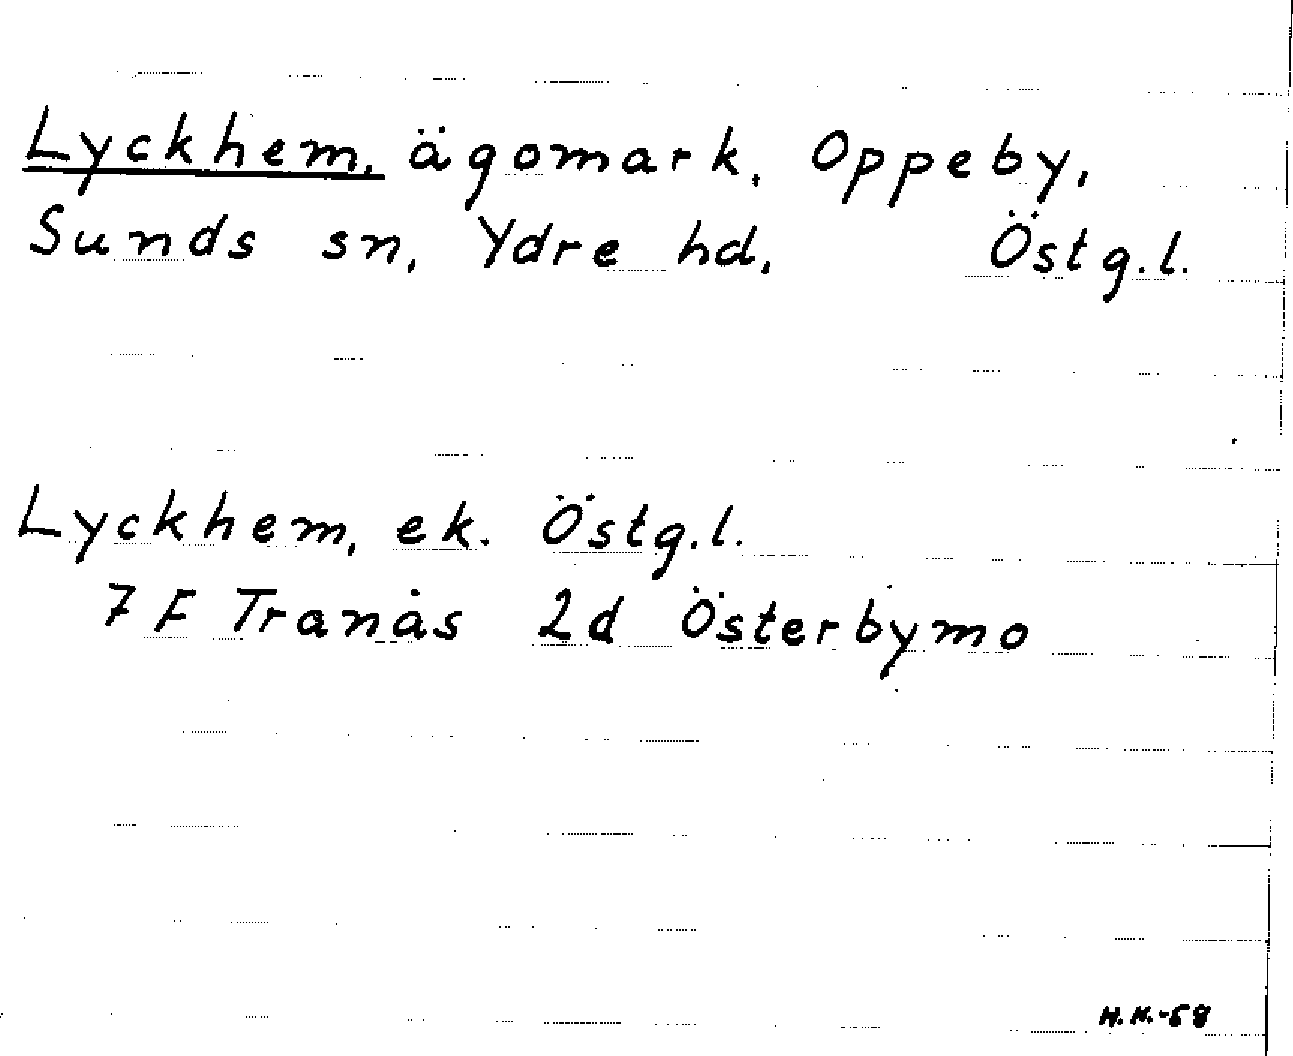 Lyckhem, ägomark, Oppeby,
Sunds sn, Ydre hd, Östg.l.
Lyckhem, ek. Östg.l.
7 F Tranås 2d Österbymo
H.K.-58